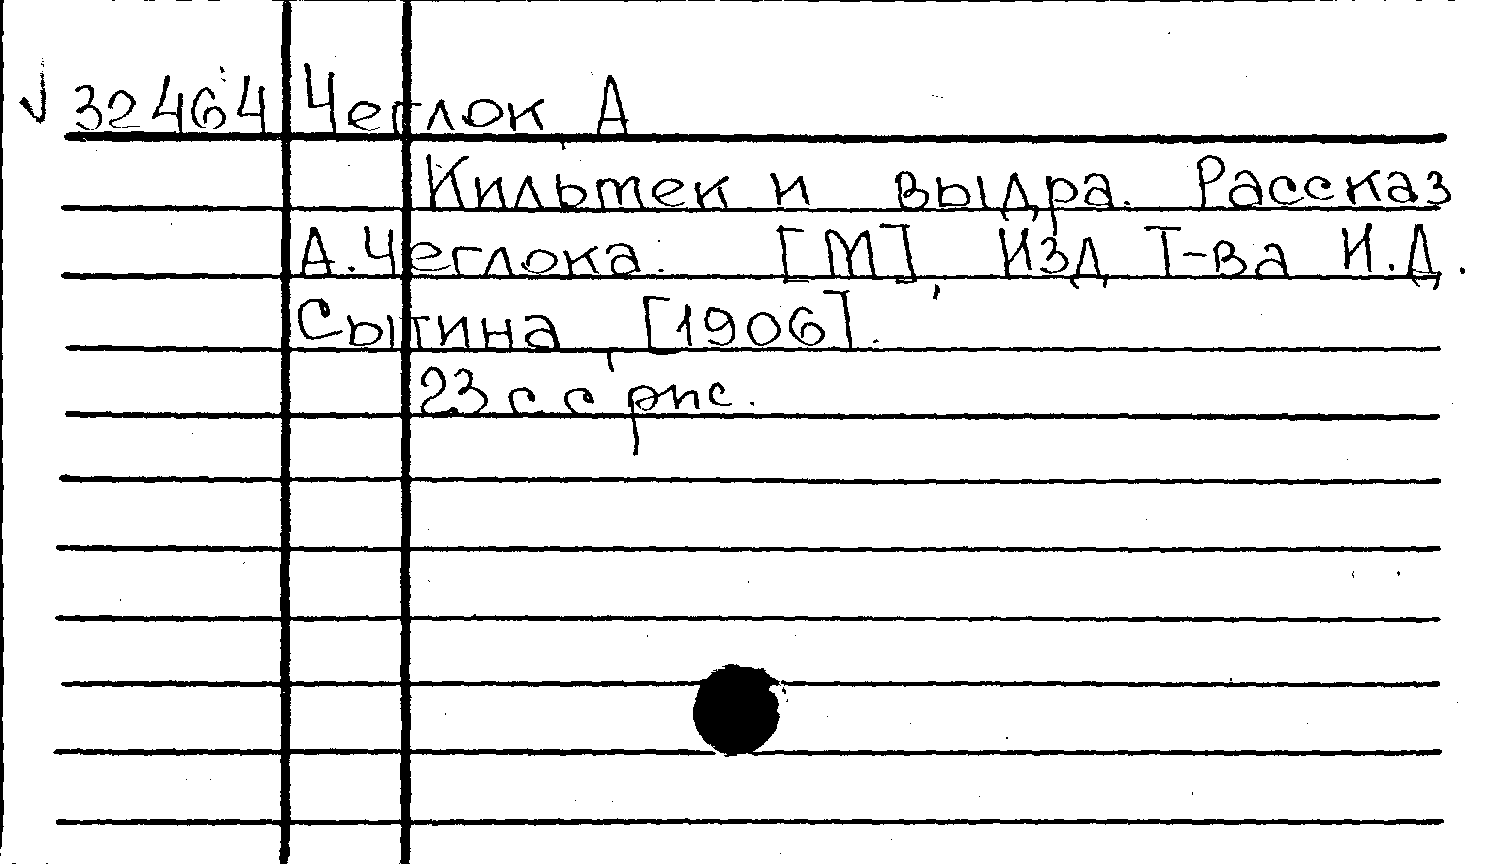 32464 Чеглок А
Кильтек и выдра. Рассказ
А. Чеглока. [М], Изд Т-ва И.Д.
Сытина, [1906].
23 с с рис.